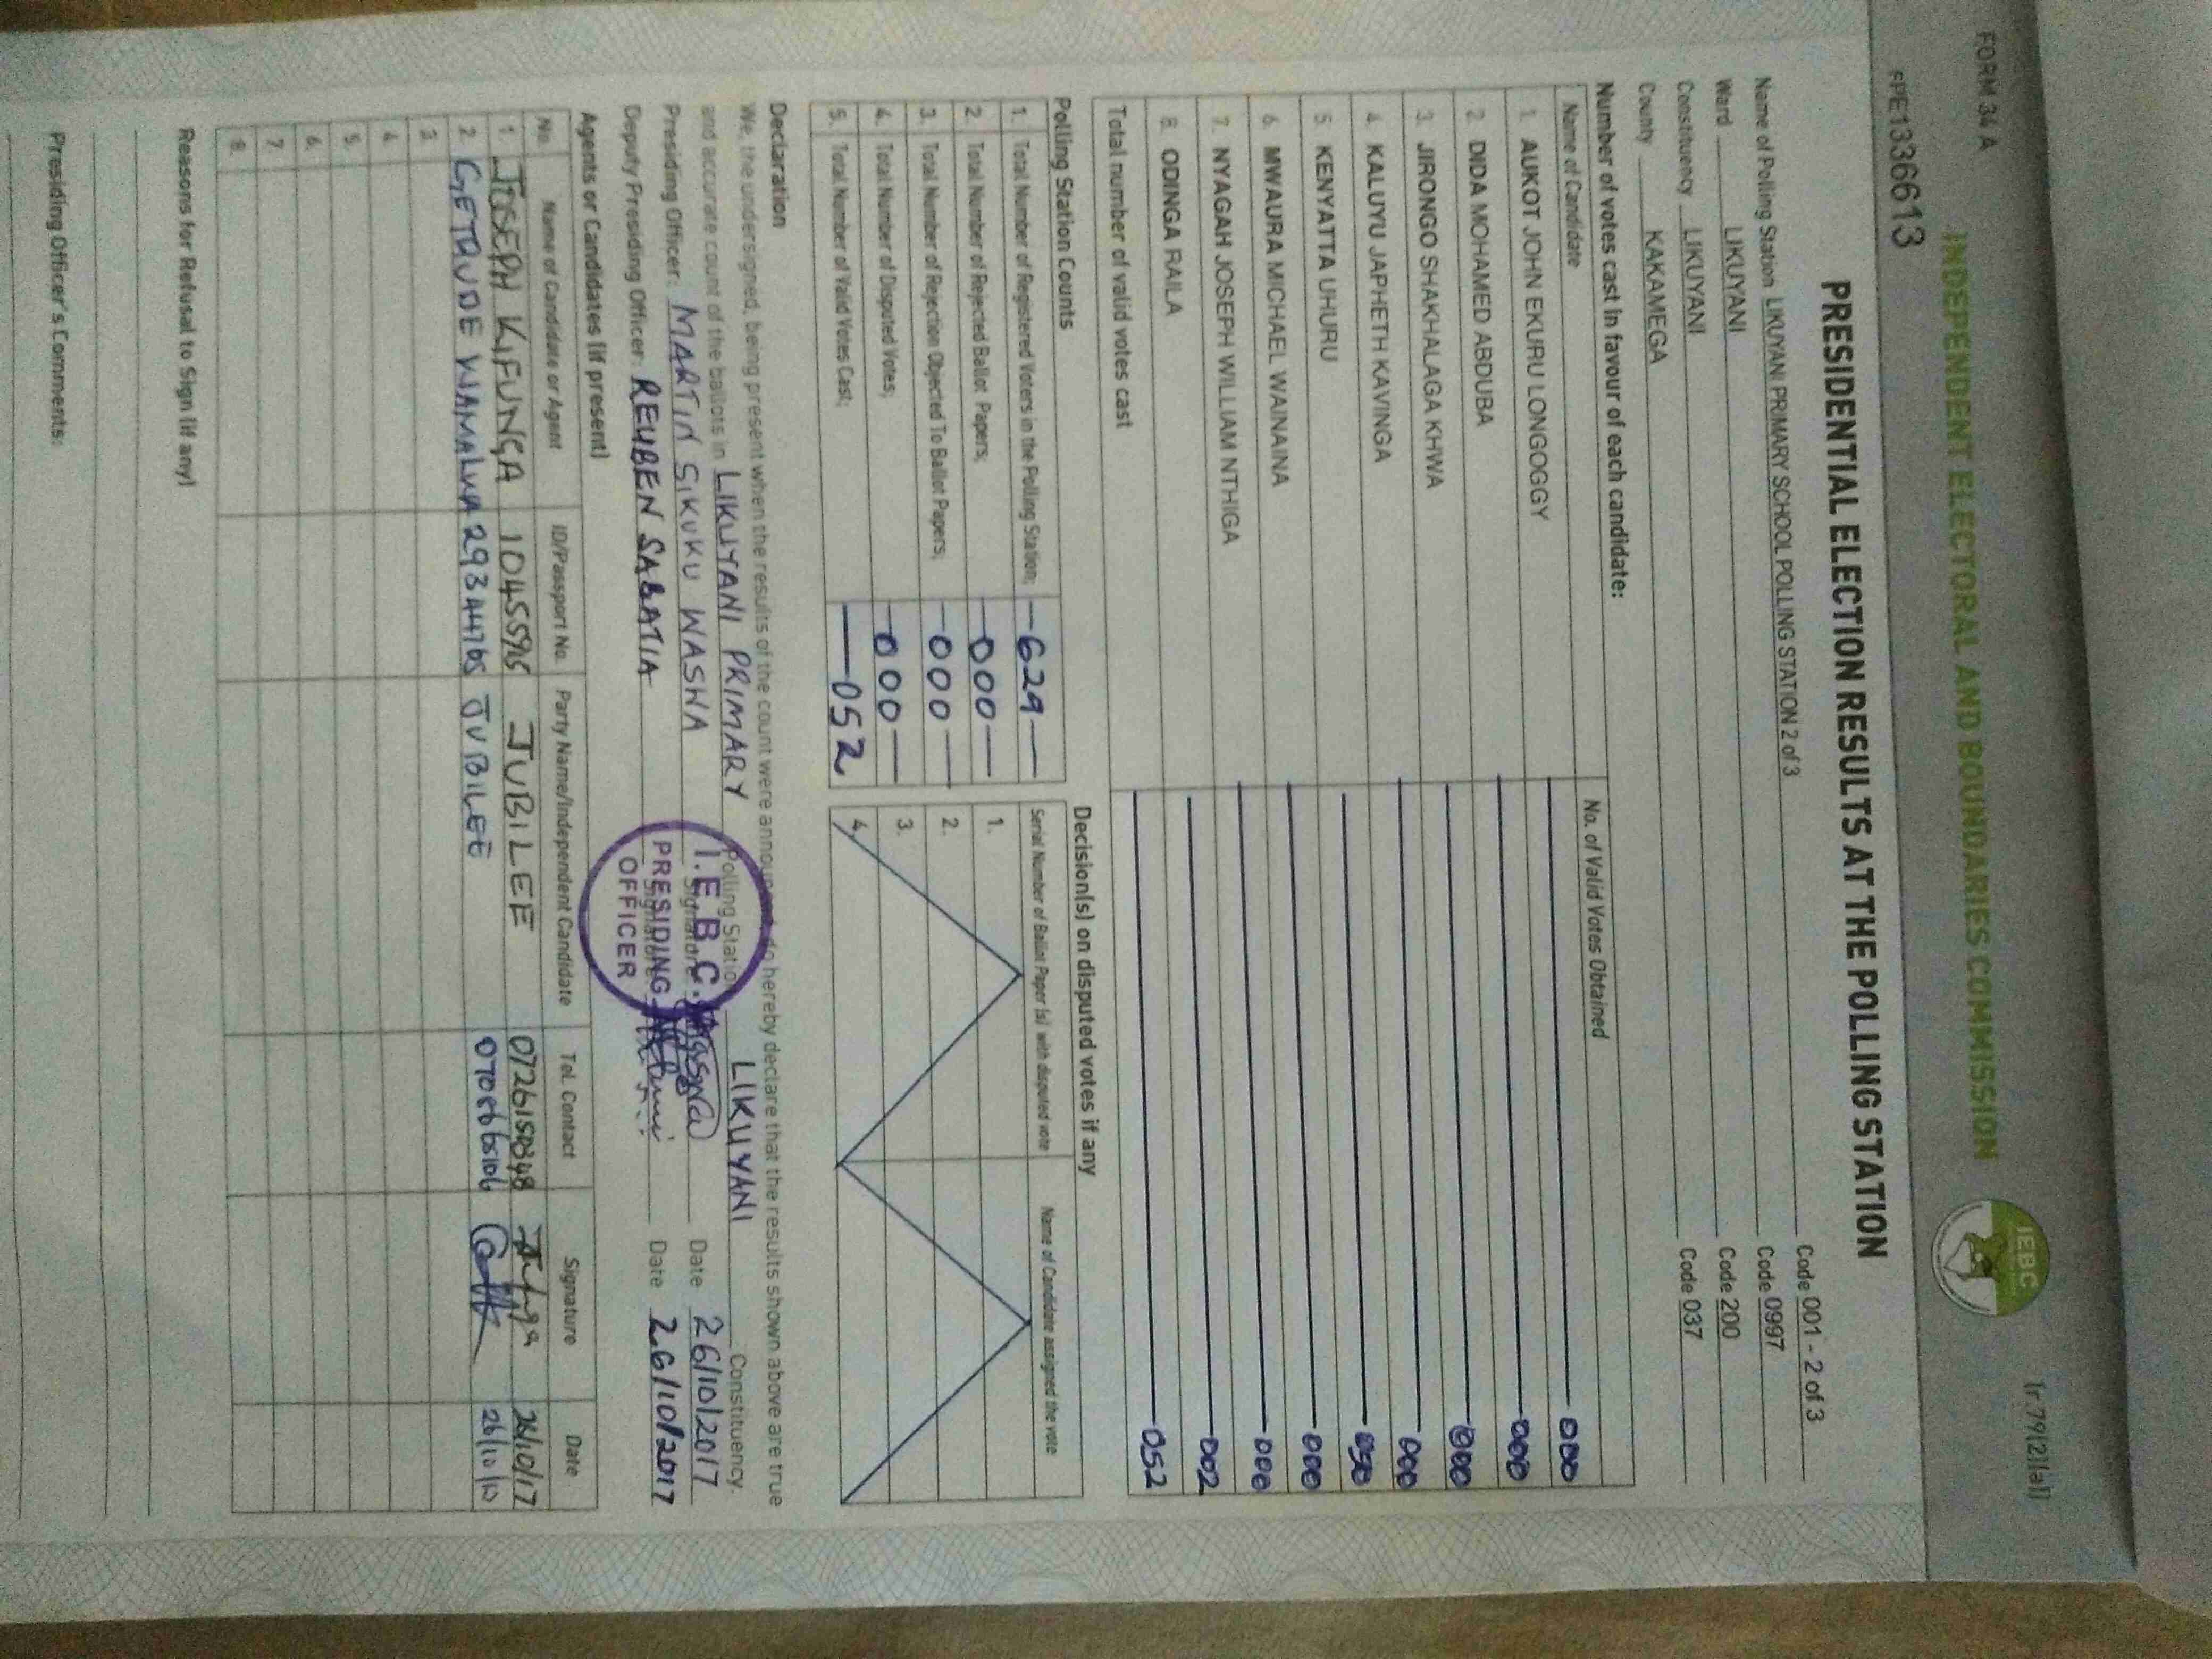 FORM 34 A
(r.79(2)(a))
INDEPENDENT ELECTORAL AND BOUNDARIES COMMISSION
IEBC
PE1336613
PRESIDENTIAL ELECTION RESULTS AT THE POLLING STATION
Name of Polling Station LIKUYANI PRIMARY SCHOOL POLLING STATION 2 of 3 Code 001 - 2 of 3
Ward LIKUYANI Code 0997
Constituency LIKUYANI Code 200
County KAKAMEGA Code 037
Number of votes cast in favour of each candidate:
Name of Candidate No. of Valid Votes Obtained
1. AUKOT JOHN EKURU LONGOGGY 000
2. DIDA MOHAMED ABDUBA 000
3. JIRONGO SHAKHALAGA KHWA 000
4. KALUYU JAPHETH KAVINGA 000
5. KENYATTA UHURU 050
6. MWAURA MICHAEL WAINAINA 000
7. NYAGAH JOSEPH WILLIAM NTHIGA 000
8. ODINGA RAILA 002
Total number of valid votes cast 052
Polling Station Counts
1. Total Number of Registered Voters in the Polling Station; 629
2. Total Number of Rejected Ballot Papers; 000
3. Total Number of Rejection Objected To Ballot Papers; 000
4. Total Number of Disputed Votes; 000
5. Total Number of Valid Votes Cast; 052
Decision(s) on disputed votes if any
Serial Number of Ballot Paper (s) with disputed vote Name of Candidate assigned the vote
1.
2.
3.
4.
Declaration
We, the undersigned, being present when the results of the count were announced, do hereby declare that the results shown above are true
and accurate count of the ballots in LIKUYANI PRIMARY Polling Station LIKUYANI Constituency.
Presiding Officer: MARTIN SIKUKU WASHA Signature Date 26/10/2017
Deputy Presiding Officer: REUBEN SABATIA Signature Date 26/10/2017
I.E.B.C.
PRESIDING
OFFICER
Agents or Candidates (if present)
No. Name of Candidate or Agent ID/Passport No. Party Name/Independent Candidate Tel. Contact Signature Date
1. JOSEPH KIFUNGA JUBILEE 26/10/17
2. GETRUDE WAMALWA JUBILEE
3.
4.
5.
6.
7.
8.
Reasons for Refusal to Sign (if any)
Presiding Officer's Comments: